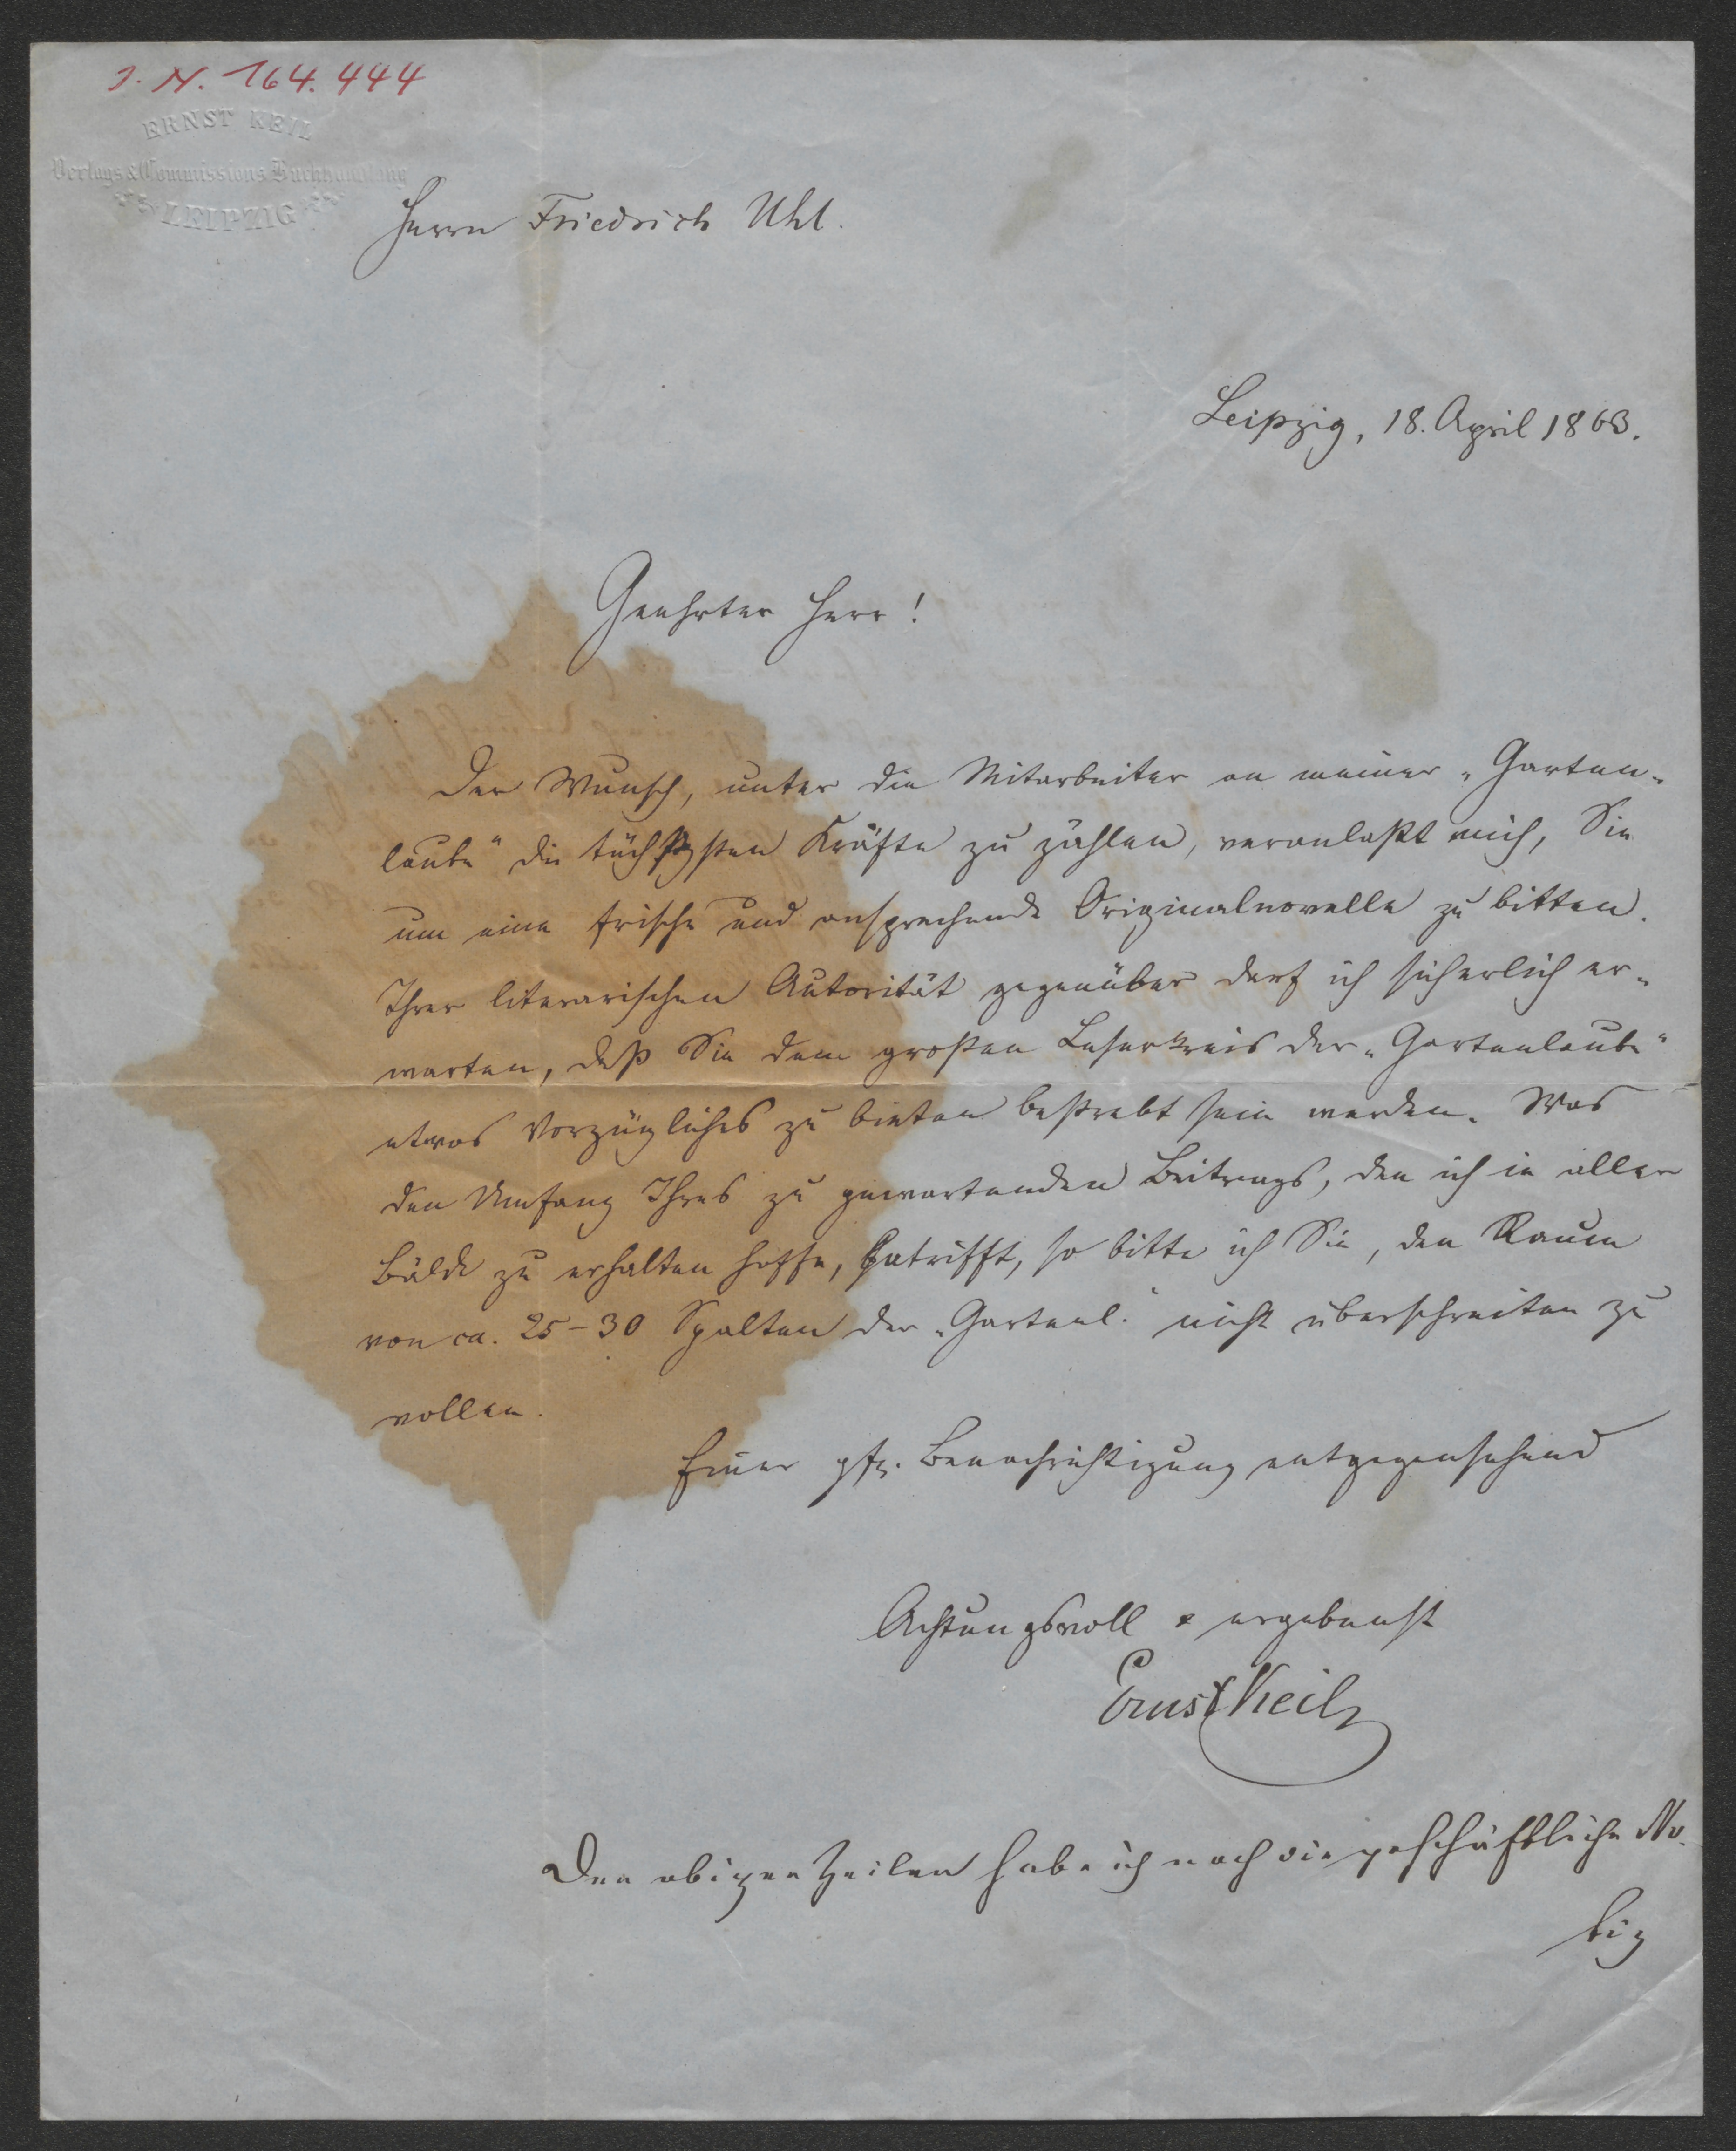 J. N. 164.444
ERNST KEIL
Verlags & Commissions Buchhandlung
LEIPZIG
Herrn Friedrich Uhl.
Leipzig, 18. April 1863.
Geehrter Herr!
Der Wunsch, unter die Mitarbeiter an meiner „Garten-
laube" die tüchtigsten Kräfte zu zählen, veranlaßt mich, Sie
um eine frische und ansprechende Originalnovelle zu bitten.
Ihrer literarischen Autorität gegenüber darf ich sicherlich er-
warten, daß Sie dem großen Leserkreis der „Gartenlaube"
etwas Vorzügliches zu bieten bestrebt sein werden. Was
den Umfang Ihres zu gewartenden Beitrags, den ich in aller
Bälde zu erhalten hoffe, betrifft, so bitte ich Sie, den Raum
von ca. 25-30 Spalten der „Gartenl." nicht überschreiten zu
wollen.
Einer gfl. Benachrichtigung entgegensehend
Achtungsvoll & ergebenst
Ernst Keil
Den obigen Zeilen habe ich noch die geschäftliche No-
tiz